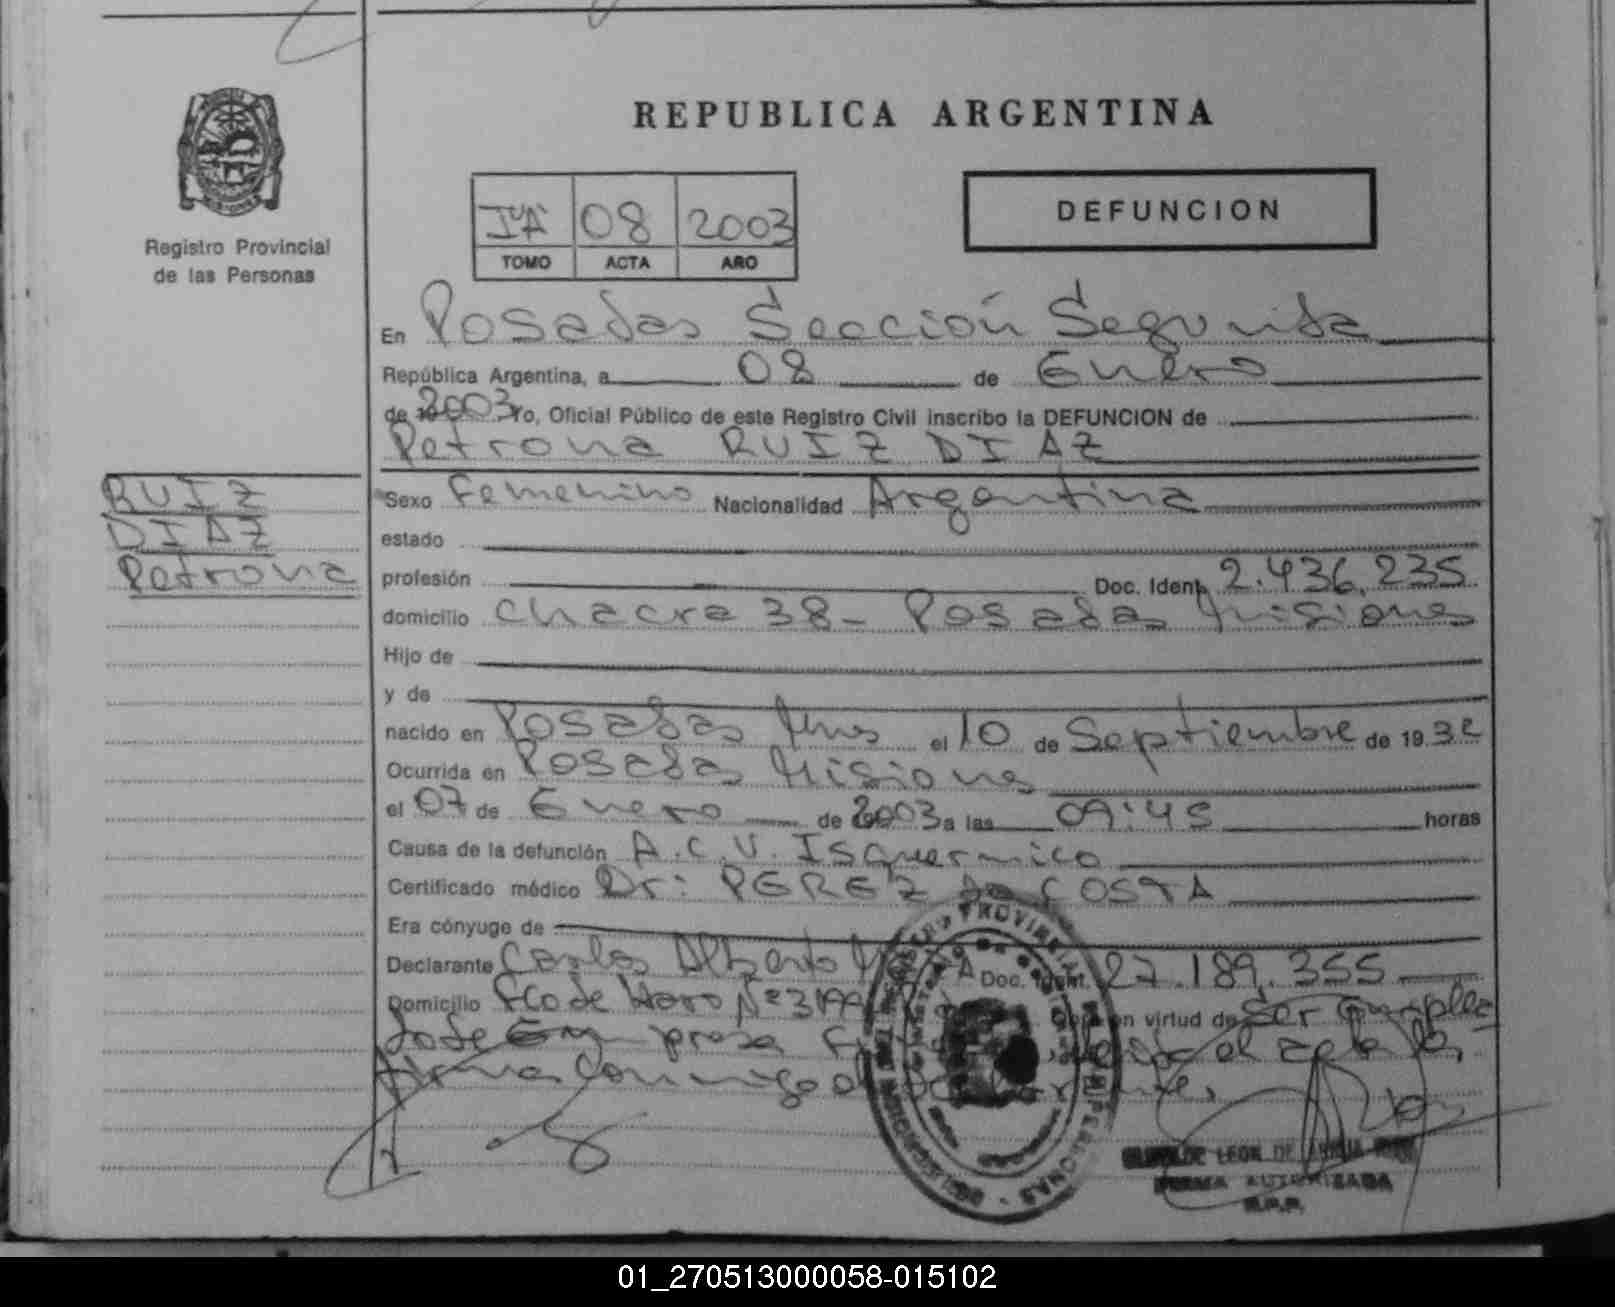 REPUBLICA ARGENTINA
Registro Provincial
de las Personas
DEFUNCION
IºA 08 2003
TOMO ACTA AÑO
En Posadas Sección Segunda
República Argentina, a 08 de Enero
de 2003 Yo, Oficial Público de este Registro Civil inscribo la DEFUNCION de
Petrona RUIZ DIAZ
RUIZ
DIAZ
Petrona
Sexo Femenino Nacionalidad Argentina
estado
profesión Doc. Ident. 2.436.235
domicilio Chacra 38- Posadas Misiones
Hijo de
y de
nacido en Posadas Mnes el 10 de Septiembre de 1932
Ocurrida en Posadas Misiones
el 07 de Enero de 2003 a las 09:45 horas
Causa de la defunción A.C.V. Isquermico
Certificado médico Dr: PEREZ Da COSTA
Era cónyuge de
Declarante Carlos Alberto Doc. Ident. 27.189.355
Domicilio Fco de Haro Nº 3199 en virtud de Ser Emplea
do de Empresa el acta la
firma conmigo el
LEON DE
FIRMA AUTORIZADA
R.P.P.
01_270513000058-015102